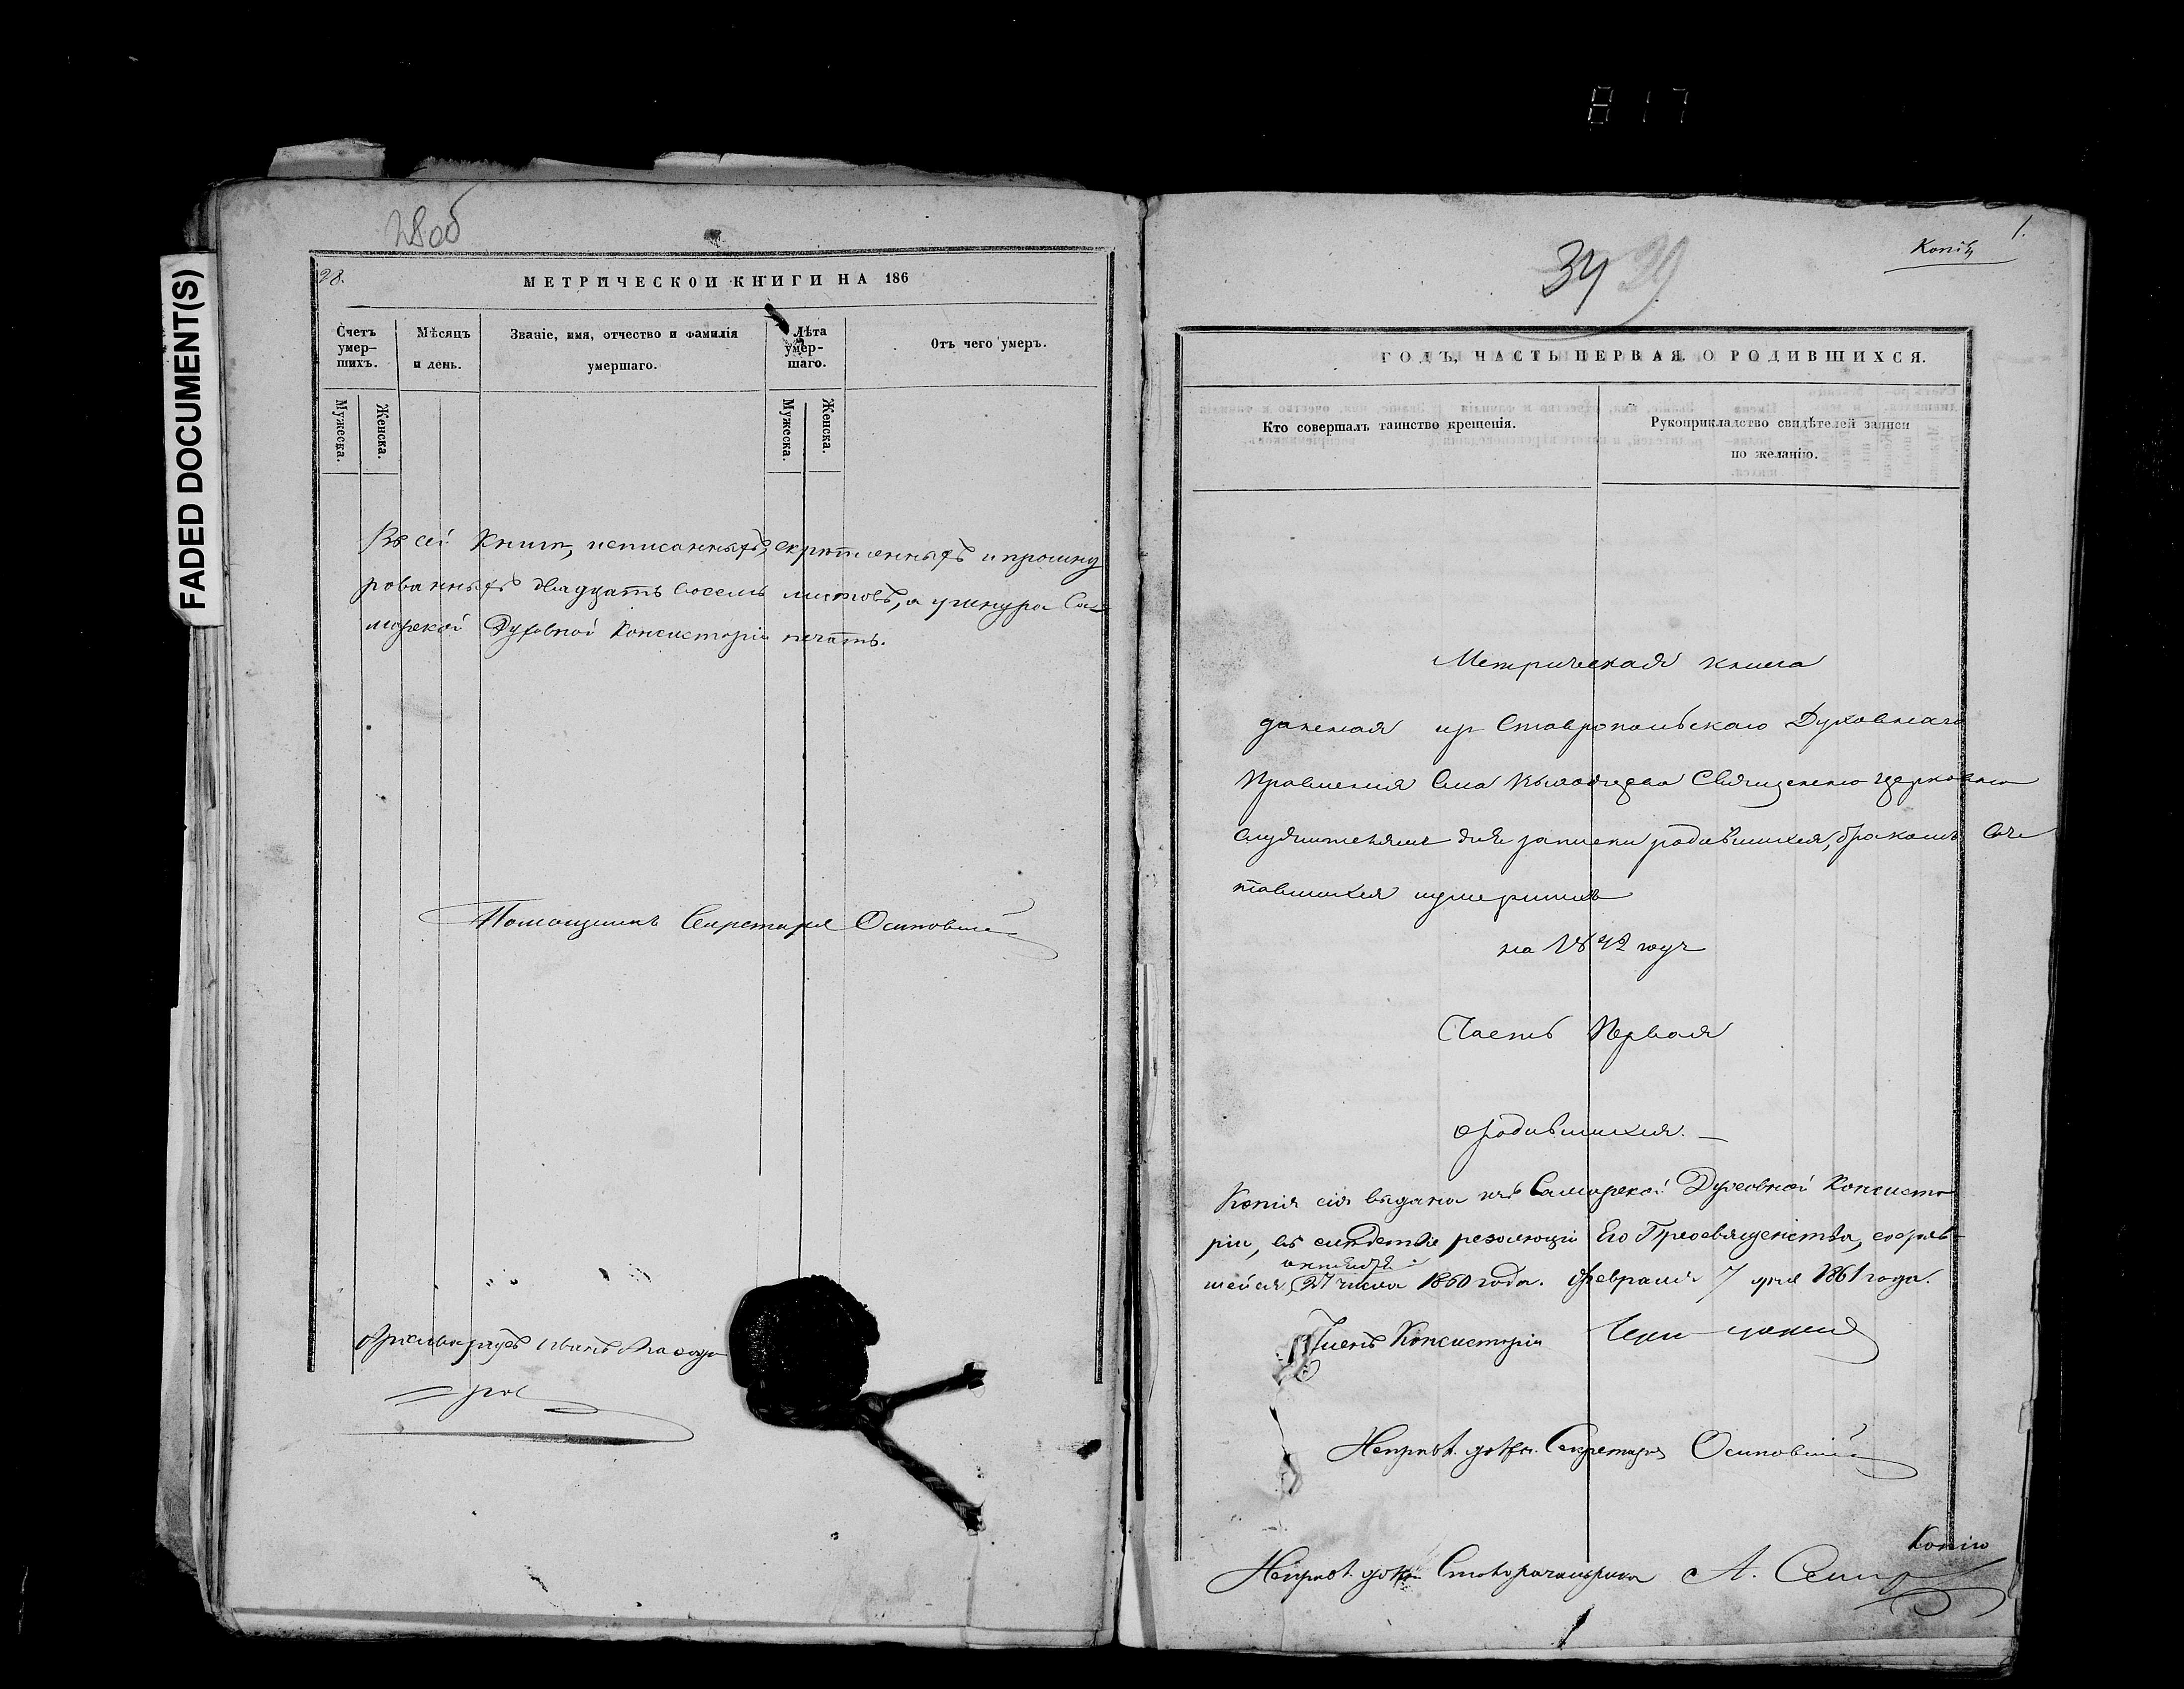 817
FADED DOCUMENT(S)
28об
28.
МЕТРИЧЕСКОЙ КНИГИ НА 186
Счетъ умер-шихъ.
Мужеска.
Женска.
Мѣсяцъ и день.
Званіе, имя, отчество и фамилія умершаго.
Лѣта умер-шаго.
Мужеска.
Женска.
Отъ чего умеръ.
Въ сей Книгѣ, исписанныхъ, скрѣпленныхъ и прошну
рованныхъ двадцать восемь листовъ, а у шнура Са-
марской Духовной Консисторіи печать.
Помощникъ Секретаря Осиповскій
Архиваріусъ Иванъ
1.
Копія
34 29
ГОДЪ, ЧАСТЬ ПЕРВАЯ, О РОДИВШИХСЯ.
Кто совершалъ таинство крещенія.
Рукоприкладство свидѣтелей записи
по желанію.
Метрическая книга
данная из Ставропольскаго Духовнаго
Правления Села Священно церковно
служителямъ для записки родившихся, бракомъ соче
тавшихся и умершихъ
на 1842 годъ
Часть Первая
о родившихся. —
Копія сія выдана изъ Самарской Духовной Консисто
ріи, въ слѣдствіе резолюціи Его Преосвященства, состояв-
октября
шейся 27 числа 1860 года. Февраля 7 дня 1861 года.
Членъ Консисторіи
Исправ. долж. Секретаря Осиповскій
Копію
Исправ. долж. Столоначальника А.